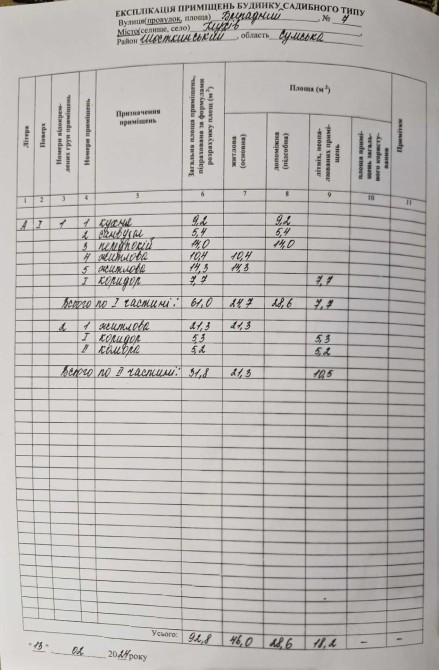 ЕКСПЛІКАЦІЯ ПРИМІЩЕНЬ БУДИНКУ САДИБНОГО ТИПУ
Вулиця(провулок, площа) № 7
Місто(селище, село) Глухів
Район Шосткинський, область Сумська
Літера
Поверх
Номери відокремлених груп приміщень
Номери приміщень
Призначення приміщень
Загальна площа приміщень, підрахована за формулами розрахунку площ (м²)
Площа (м²)
житлова (основна)
допоміжна (підсобна)
літніх, неопалюваних приміщень
площа приміщень загального користування
Примітки
1 2 3 4 5 6 7 8 9 10 11
А I 1 1 кухня 9,2 9,2
2 санвузел 5,4 5,4
3 передпокій 14,0 14,0
4 житлова 10,4 10,4
5 житлова 14,3 14,3
I коридор 7,7 7,7
Всього по I частині: 61,0 24,7 28,6 7,7
2 1 житлова 21,3 21,3
I коридор 5,3 5,3
II комора 5,2 5,2
Всього по II частині: 31,8 21,3 10,5
Усього: 92,8 46,0 28,6 18,2 – –
"13" 02 2024 року